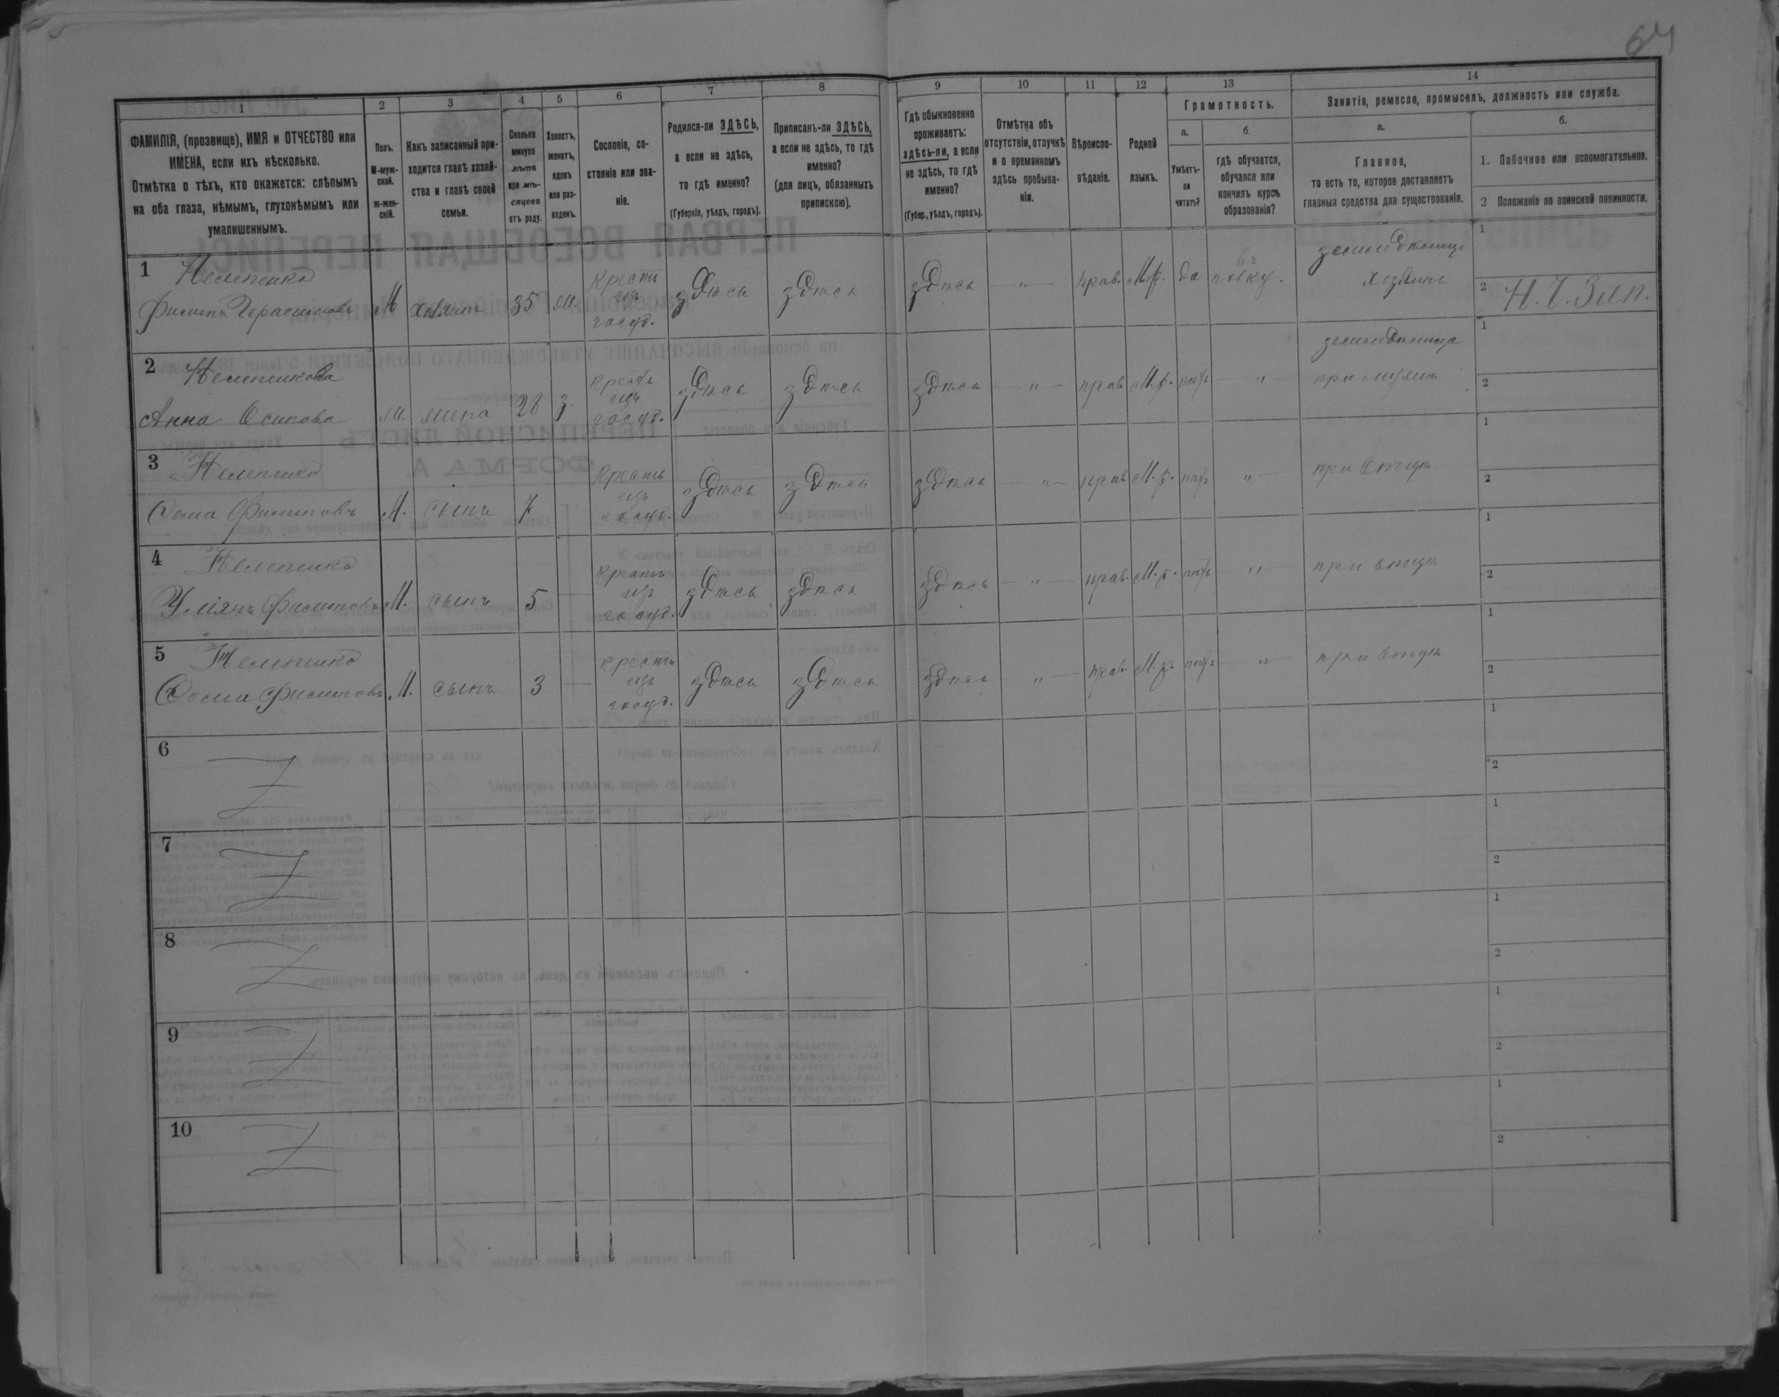 64
1 2 3 4 5 6 7 8 9 10 11 12 13 14
ФАМИЛІЯ, (прозвище), ИМЯ и ОТЧЕСТВО или
ИМЕНА, если ихъ нѣсколько.
Отмѣтка о тѣхъ, кто окажется: слѣпымъ
на оба глаза, нѣмымъ, глухонѣмымъ или
умалишеннымъ.
Полъ.
М-муж-
ской.
ж-жен-
скій.
Какъ записанный при-
ходится главѣ хозяй-
ства и главѣ своей
семьи.
Сколько
минуло
лѣтъ
или мѣ-
сяцевъ
отъ роду.
Холостъ,
женатъ,
вдовъ
или раз-
веденъ.
Сословіе, со-
стояніе или зва-
ніе.
Родился-ли ЗДѢСЬ,
а если не здѣсь,
то гдѣ именно?
(Губернія, уѣздъ, городъ).
Приписанъ-ли ЗДѢСЬ,
а если не здѣсь, то гдѣ
именно?
(для лицъ, обязанныхъ
припискою).
Гдѣ обыкновенно
проживаетъ:
здѣсь-ли, а если
не здѣсь, то гдѣ
именно?
(Губер., уѣздъ, городъ).
Отмѣтка объ
отсутствіи, отлучкѣ
и о временномъ
здѣсь пребыва-
ніи.
Вѣроиспо-
вѣданіе.
Родной
языкъ.
Грамотность.
а.
Умѣетъ-
ли
читать?
б.
гдѣ обучается,
обучался или
кончилъ курсъ
образованія?
Занятіе, ремесло, промыселъ, должность или служба.
а.
Главное,
то есть то, которое доставляетъ
главныя средства для существованія.
б.
1. Побочное или вспомогательное.
2 Положеніе по воинской повинности.
1 Нелепенко
Филипъ Герасимовъ М хозяинъ 35 ж. Крестья изъ госуд. здѣсь здѣсь здѣсь — " — прав. М.р. да въ полку. земледѣлецъ хозяинъ
1
2 Н.Ч.Зап.
2 Нелепенкова
Анна Осипова ж. жена 28 з. Крестья изъ госуд. здѣсь здѣсь здѣсь — " — прав. М.р. нѣтъ " земледѣлица при мужѣ
1
2
3 Нелепенко
Сома Филиповъ М. сынъ 7 Крестья изъ госуд. здѣсь здѣсь здѣсь — " — прав. М.р. нѣтъ " при отцѣ
1
2
4 Нелепенко
Уліянъ Филиповъ М. сынъ 5 — Крестья изъ госуд. здѣсь здѣсь здѣсь — " — прав. М.р. нѣтъ " при отцѣ
1
2
5 Нелепенко
Филиповъ М. сынъ 3 — Крестья изъ госуд. здѣсь здѣсь здѣсь — " — прав. М.р. нѣтъ " при отцѣ
1
2
6
1
2
7
1
2
8
1
2
9
1
2
10
1
2